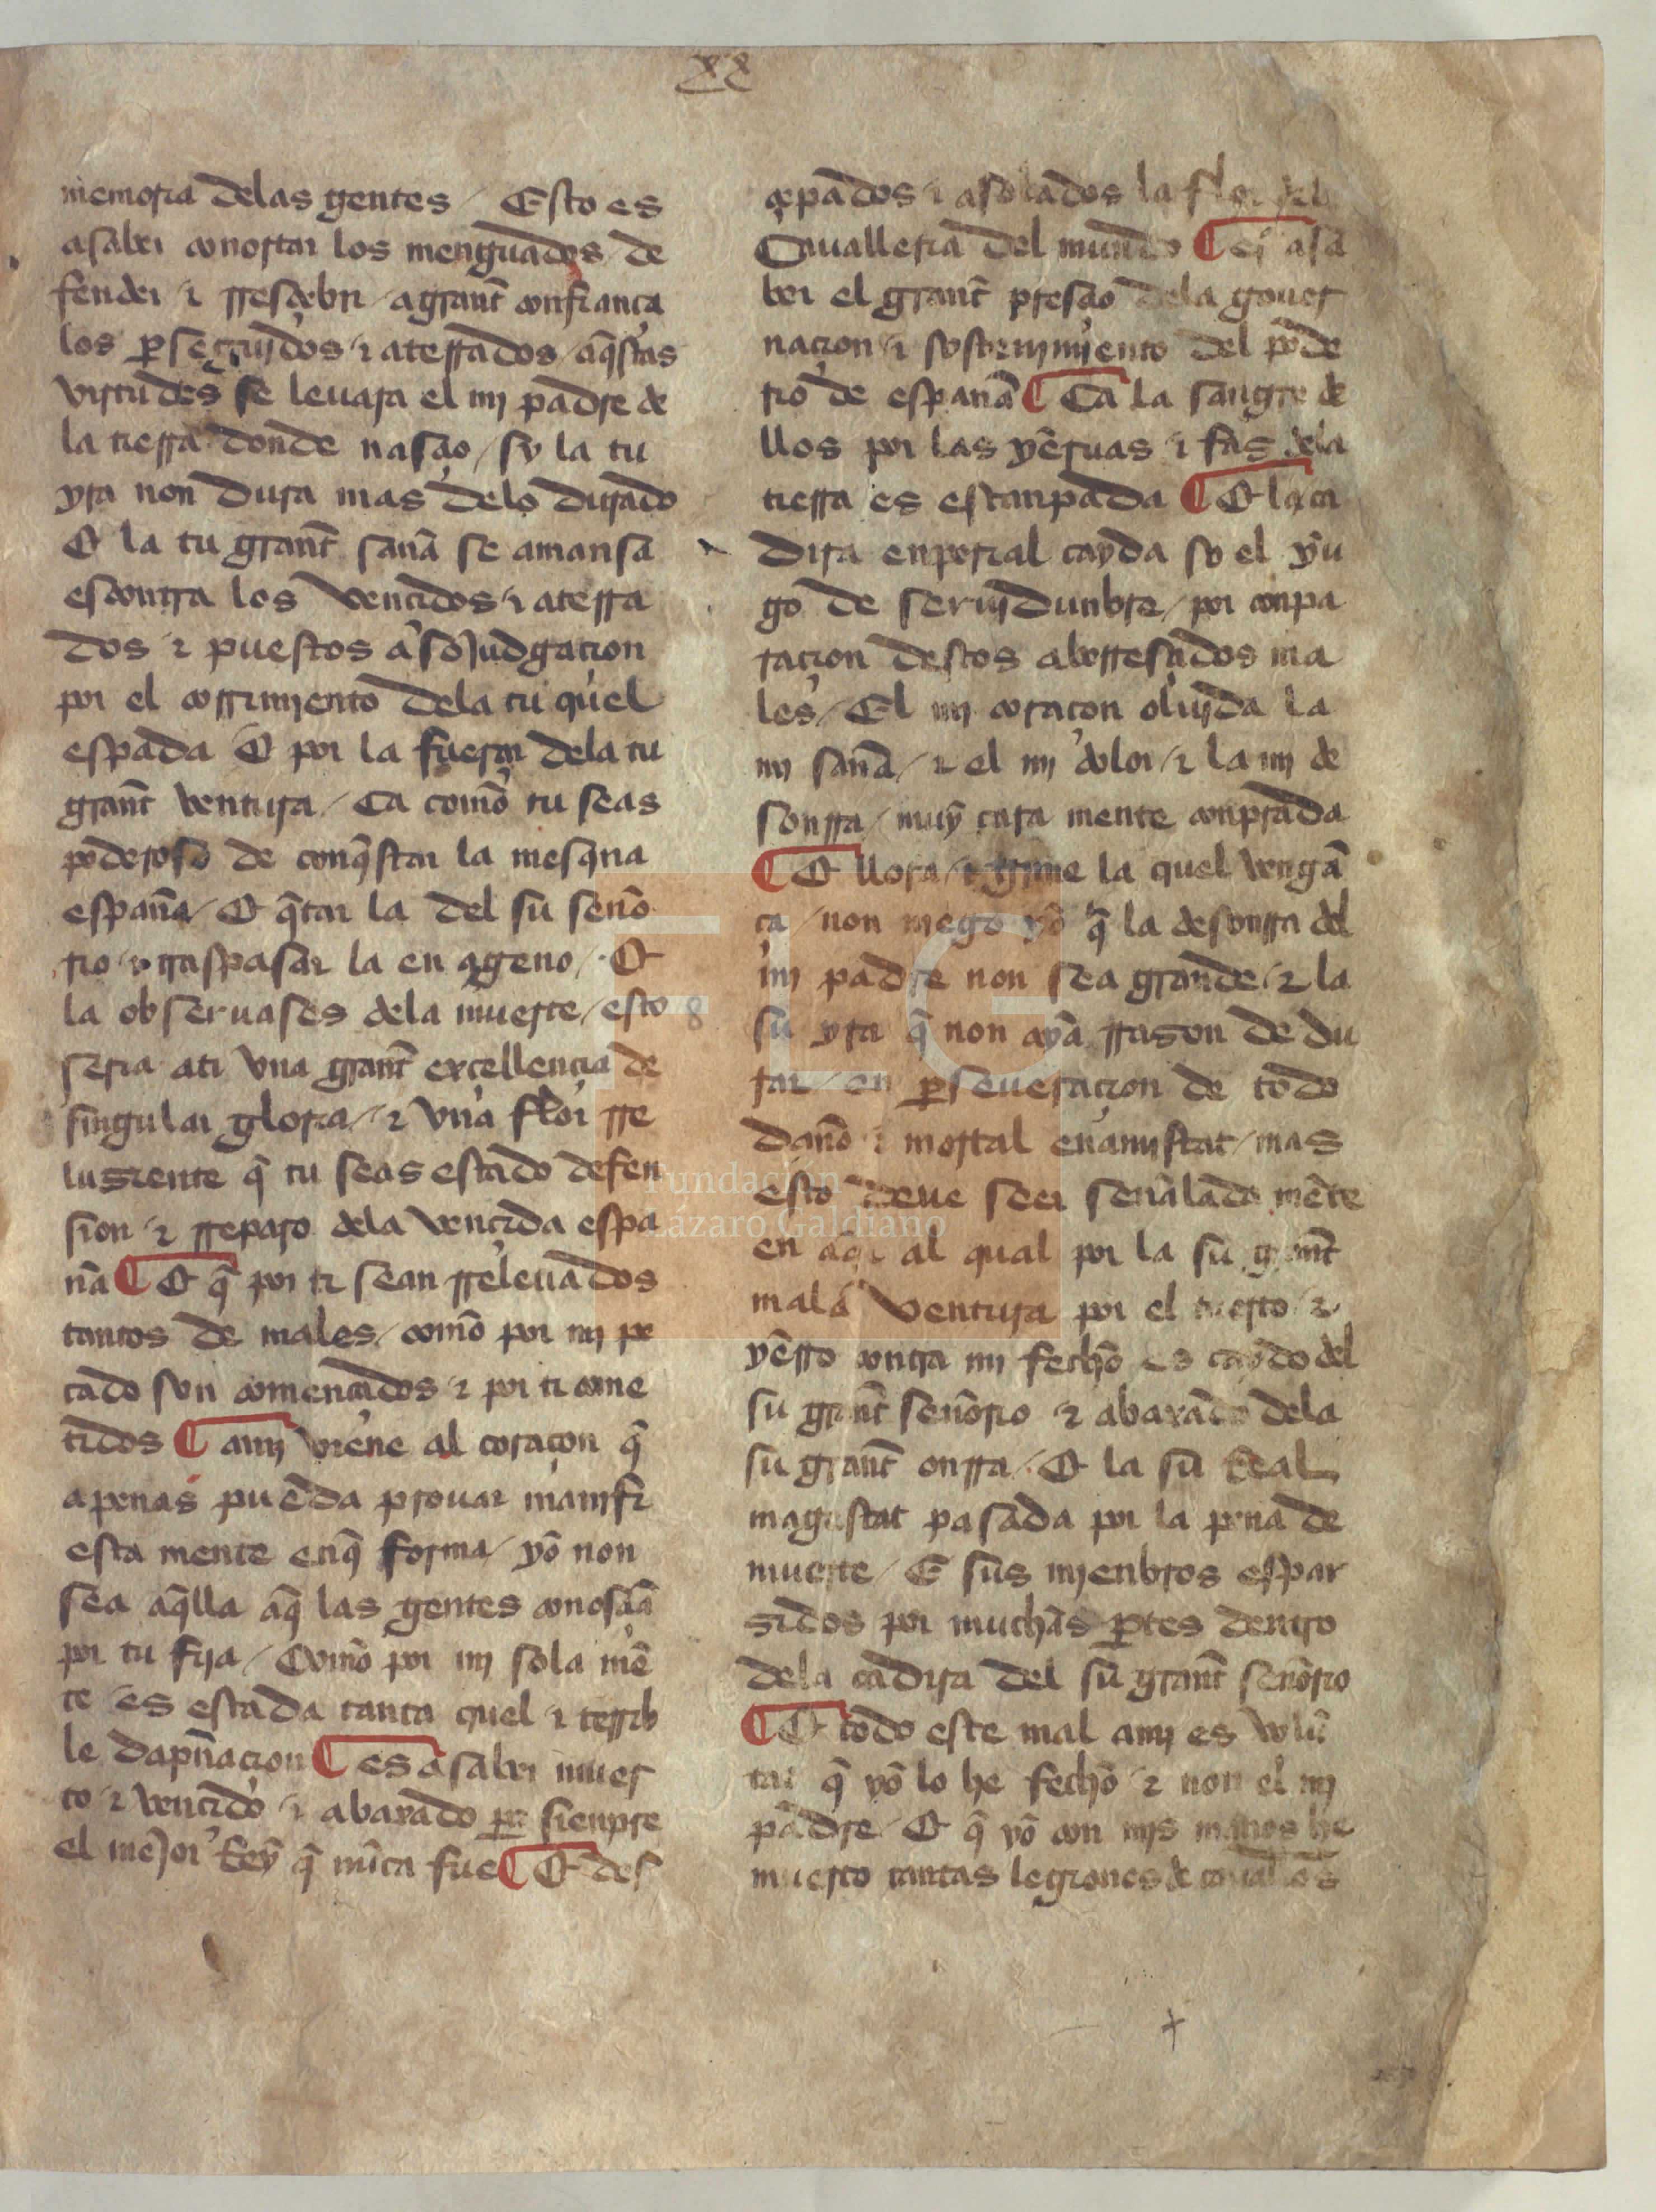 xx
memoria delas gentes / Esto es
asaber conortar los menguados de
fender ⁊ rresçebir / a grant confiança
los perseguidos ⁊ aterrados / aq̃stas
virtudes se leuara el mi padre de
la tierra donde nasçio / sy la tu
yra non dura mas delo durado
E la tu grant̃ sanã se amansa
escontra los vençidos ⁊ aterra
dos ⁊ puestos a sojudgaçion
por el corrimiento dela tu quel
espada E por la fuerça dela tu
grant̃ ventura / Ca comõ tu seas
poderoso de conq̃star la mesq̃na
españa / E q̃tar la del su senõ
rio ⁊ traspasar la en ageno / E
la obseruases dela muerte / esto
seria ati vna grant̃ exçellençia de
singular gloria / ⁊ vna flor rre
lusiente q̃ tu seas estado defen
sion ⁊ rreparo dela vençida espa
nã ¶ E q̃ por ti sean rreleuados
tantos de males / comõ por mi pe
cado son començados ⁊ por ti come
tidos ¶ ami viene al coraçon q̃
apenas pueda prouar manifi
esta mente enq̃ forma / yo non
sea aq̃lla aq̃ las gentes conosçiã
por tu fija / Comõ por mi sola mẽ
te es estada tanta quel ⁊ terrib
le dapñaçion ¶ es asaber muer
to ⁊ vençido ⁊ abaxado pa sienpre
el mejor Rey q̃ nũca fue ¶ E des
çepados ⁊ asolados la flor dela
Caualleria del mundo ¶ es asa
ber el grant̃ presçio dela gouer
naçion ⁊ sostenimiento del pode
rio de espanã ¶ Ca la sangre de
llos por las yeruas ⁊ fas dela
tierra es estanpada ¶ E la ca
dira enperial cayda so el yu
go de seruidunbre / por conpa
raçion destos aborresçidos ma
les / El mi coraçon oluida la
mi sanã / ⁊ el mi dolor / ⁊ la mi de
sonrra / muy cara mente conprada
¶ E llora / ⁊ gime la quel vengã
ça / non niego yo q̃ la desonrra del
mi padre non sea grande / ⁊ la
su yra q̃ non aya rrason de du
rar / en perseueraçion de todo
danõ ⁊ mortal enamistat / mas
esto deue seer senãlada mẽte
en al qual por la su grant̃
mala ventura por el tuerto ⁊
yerro contra mi fecho es caydo del
su grant̃ senõrio ⁊ abaxado dela
su grant̃ onrra / E la su Real
magestat pasada por la pena de
muerte / E sus mienbros espar
zidos por muchas partes dentro
dela cadira del su grant̃ senõrio
¶ E todo este mal ami es volũ
tar q̃ yo lo he fecho ⁊ non el mi
padre / E q̃ yo con mis manos he
muerto tantas legiones de
FLG
Fundación
Lázaro Galdiano